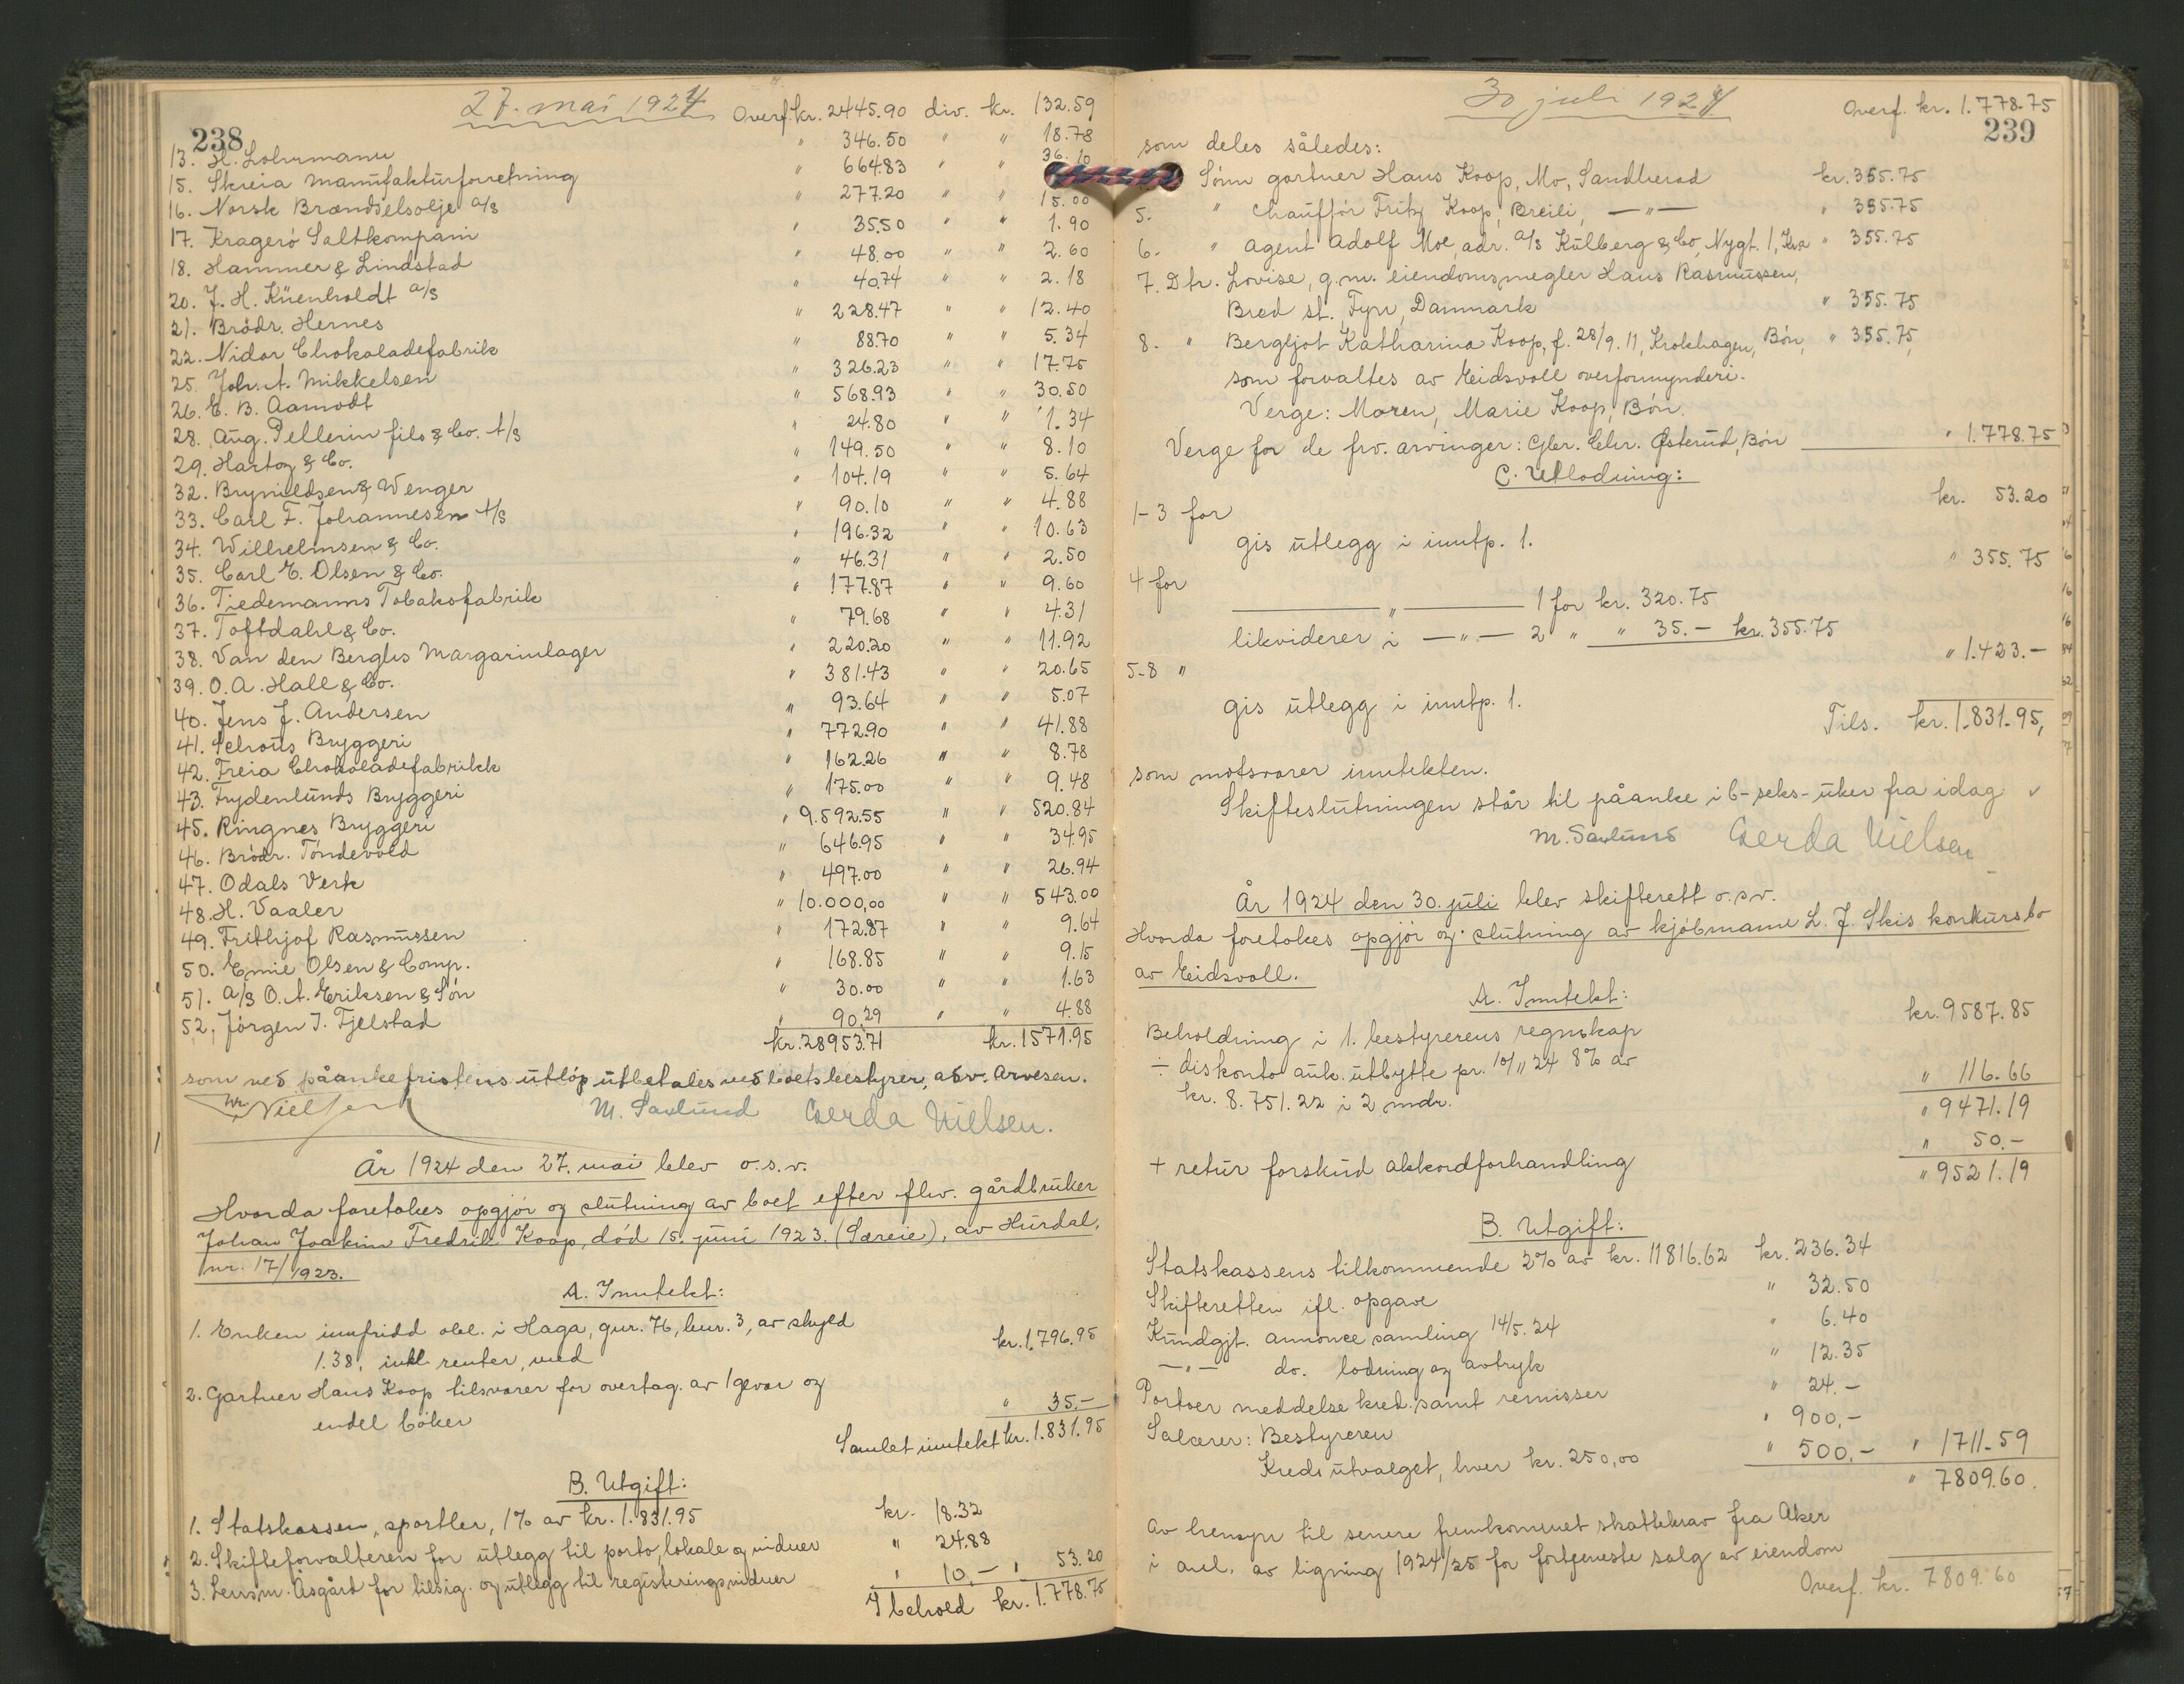 238
27. mai 1924
Overf. kr. 2445.90 div. kr. 132.59
13. H. Lohrmann " 346.50 " " 18.78
15. Skreia Manufakturforretning " 664.83 " " 36.10
16. Norsk Brændselsolje a/s " 277.20 " " 15.00
17. Kragerö Saltkompani " 35.50 " " 1.90
18. Hammer & Lindstad " 48.00 " " 2.60
20. J. H. Küenholdt a/s " 40.74 " " 2.18
21. Brödr. Hernes " 228.47 " " 12.40
22. Nidar Chokoladefabrik " 88.70 " " 5.34
25. Joh. A. Mikkelsen " 326.23 " " 17.75
26. E. B. Aamodt " 568.93 " " 30.50
28. Aug. Pellerin fils & Co. A/S " 24.80 " " 1.34
29. Hartog & Co. " 149.50 " " 8.10
32. Brynildsen & Wenger " 104.19 " " 5.64
33. Carl F. Johannesen A/S " 90.10 " " 4.88
34. Wilhelmsen & Co. " 196.32 " " 10.63
35. Carl E. Olsen & Co. " 46.31 " " 2.50
36. Tiedemanns Tobaksfabrik " 177.87 " " 9.60
37. Toftdahl & Co. " 79.68 " " 4.31
38. Van den Berghs Margarinlager " 220.20 " " 11.92
39. O. A. Hall & Co. " 381.43 " " 20.65
40. Jens J. Andersen " 93.64 " " 5.07
41. Schous Bryggeri " 772.90 " " 41.88
42. Freia Chokoladefabrikk " 162.26 " " 8.78
43. Frydenlunds Bryggeri " 175.00 " " 9.48
45. Ringnes Bryggeri " 9.592.55 " " 520.84
46. Brödr. Töndevold " 646.95 " " 34.95
47. Odals Verk " 497.00 " " 26.94
48. H. Vaaler " 10.000,00 " " 543.00
49. Frithjof Rasmussen " 172.87 " " 9.64
50. Emie Olsen & Comp. " 168.85 " " 9.15
51. A/S O. A. Eriksen & Sön " 30.00 " " 1.63
52. Jörgen J. Fjelstad " 90.29 " " 4.88
kr. 28953.71 kr. 1571.95
som ved påankefristens utlöp utbetales ved boets bestyrer, adv. Arvesen.
Nielsen M. Saxlund Gerda Nielsen.
År 1924 den 27. mai blev o.s.v.
Hvorda foretokes opgjör og slutning av boet efter fhv. gårdbruker
Johan Joakim Fredrik Koop, död 15. juni 1923. (Særeie), av Hurdal,
nr. 17/1923.
A. Inntekt:
1. Enken innfridd obl. i Haga, gnr. 76, bnr. 3, av skyld
1.38, inkl. renter, med kr. 1.796.95
2. Gartner Hans Koop tilsvarer for overtag. av 1 gevær og
endel böker " 35.-
Samlet inntekt kr. 1.831.95
B. Utgift:
1. Statskassen, sportler, 1% av kr. 1.831.95 kr. 18.32
2. Skifteforvalteren for utlegg til porto, lokale og vidner " 24.88
3. Lensm. Åsgård for tilsig. og utlegg til registeringsvidner " 10.- " 53.20
I behold kr. 1.778.75
30 juli 1924
239
Overf. kr. 1.778.75
som deles således:
Sönn gartner Hans Koop, Mo, Sandherad kr. 355.75
5. " chaufför Fritz Koop, Breili, —"— " 355.75
6. " agent Adolf Moe, adr. A/S Kulberg & Co, Nygt. 1, Kra " 355.75
7. Dtr. Lovise, g.m. eiendomsmegler Hans Rasmussen,
Bred st. Fyn, Danmark " 355.75
8. " Bergljot Katharina Koop, f. 28/9.11, Krokhagen, Bön, " 355.75,
som forvaltes av Eidsvoll overformynderi.
Verge: Moren, Marie Koop, Bön.
Verge for de frv. arvinger: Gbr. Chr. Østerud, Bön " 1.778.75
C. Utlodning:
1-3 for kr. 53.20
gis utlegg i inntp. 1.
4 for " 355.75
—— " —— 1 for kr. 320.75
likviderer i —"— 2 " " 35.- kr. 355.75
5-8 " " 1.423.-
gis utlegg i inntp. 1.
Tils. kr. 1.831.95,
som motsvarer inntekten.
Skifteslutningen står til påanke i 6-seks-uker fra idag
M. Saxlund Gerda Nielsen
År 1924 den 30. juli blev skifterett o.s.v.
Hvorda foretokes opgjör og slutning av kjöbmann L. J. Skis konkursbo
av Eidsvoll.
A. Inntekt:
Beholdning i 1. bestyrerens regnskap kr. 9587.85
÷ diskonto auk. utbytte pr. 10/11 24 8% av
kr. 8.751.22 i 2 mdr. " 116.66
" 9471.19
+ retur forskud akkordforhandling " 50.-
" 9521.19
B. Utgift:
Statskassens tilkommende 2% av kr. 11816.62 kr. 236.34
Skifteretten ifl. opgave " 32.50
Kundgjt. annonce samling 14/5.24 " 6.40
—"— do. lodning og avtryk " 12.35
Portoer meddelse kred. samt remisser " 24.-
Salærer: Bestyreren " 900,-
Kreds utvalget, hver kr. 250,00 " 500,- " 1711.59
" 7809.60.
Av hensyn til senere fremkommet skattekrav fra Aker
i anl. av ligning 1924/25 for fortjeneste salg av eiendom
Overf. kr. 7809.60